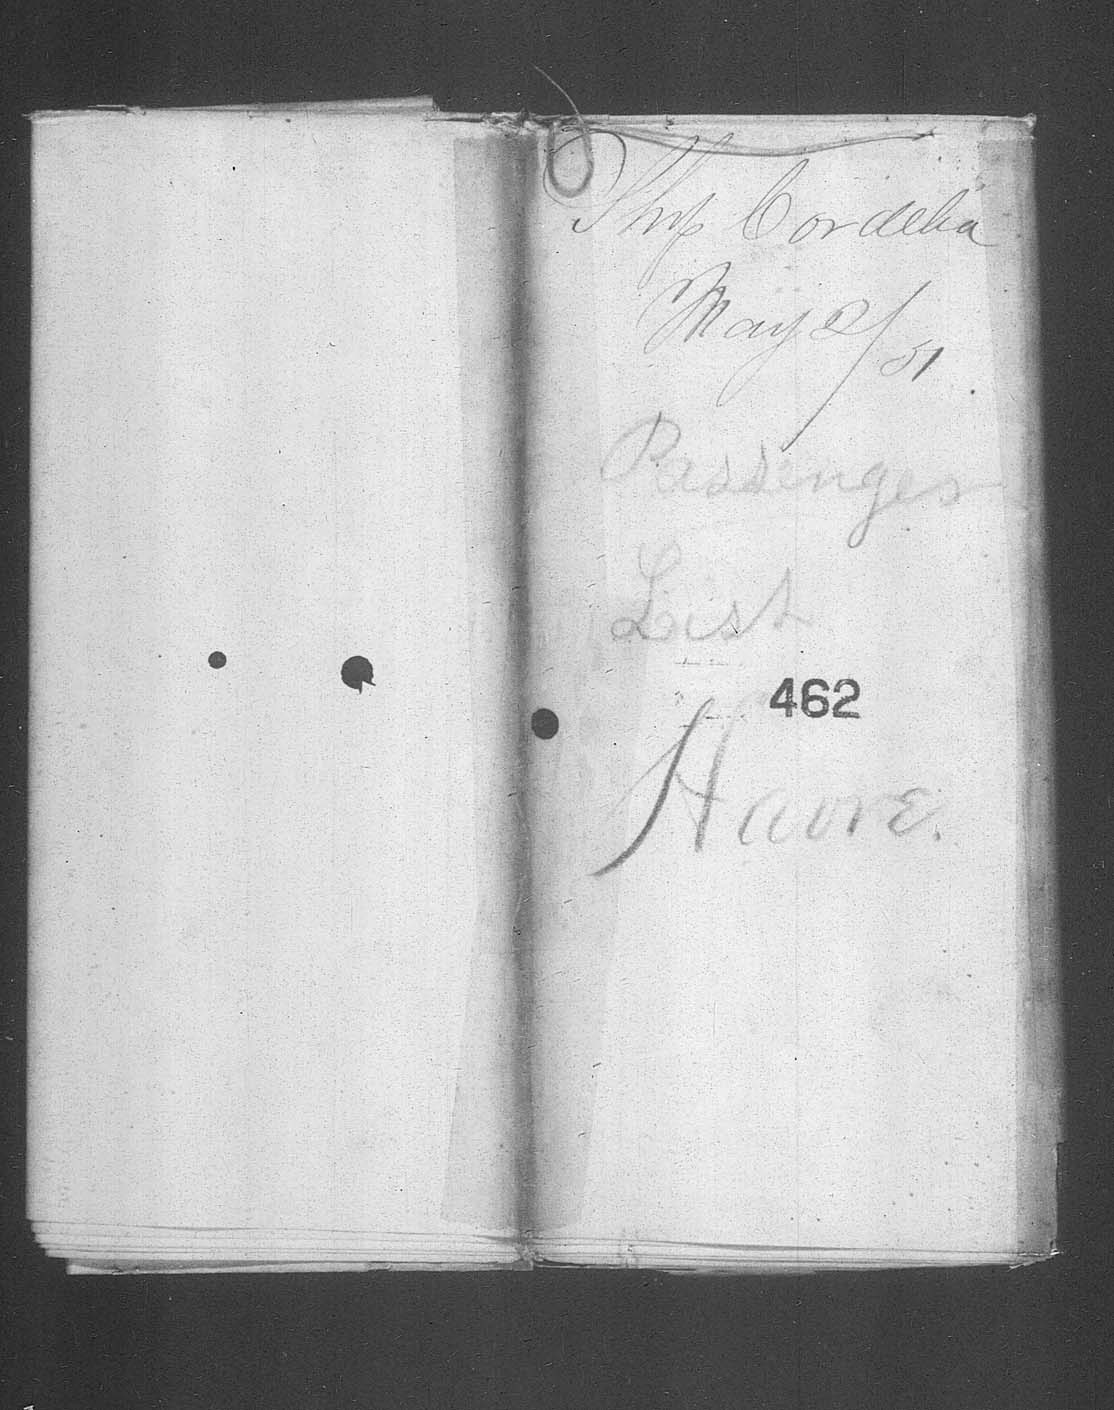 Ship Cordelia
May 2/51
Passenger
List
462
Havre.